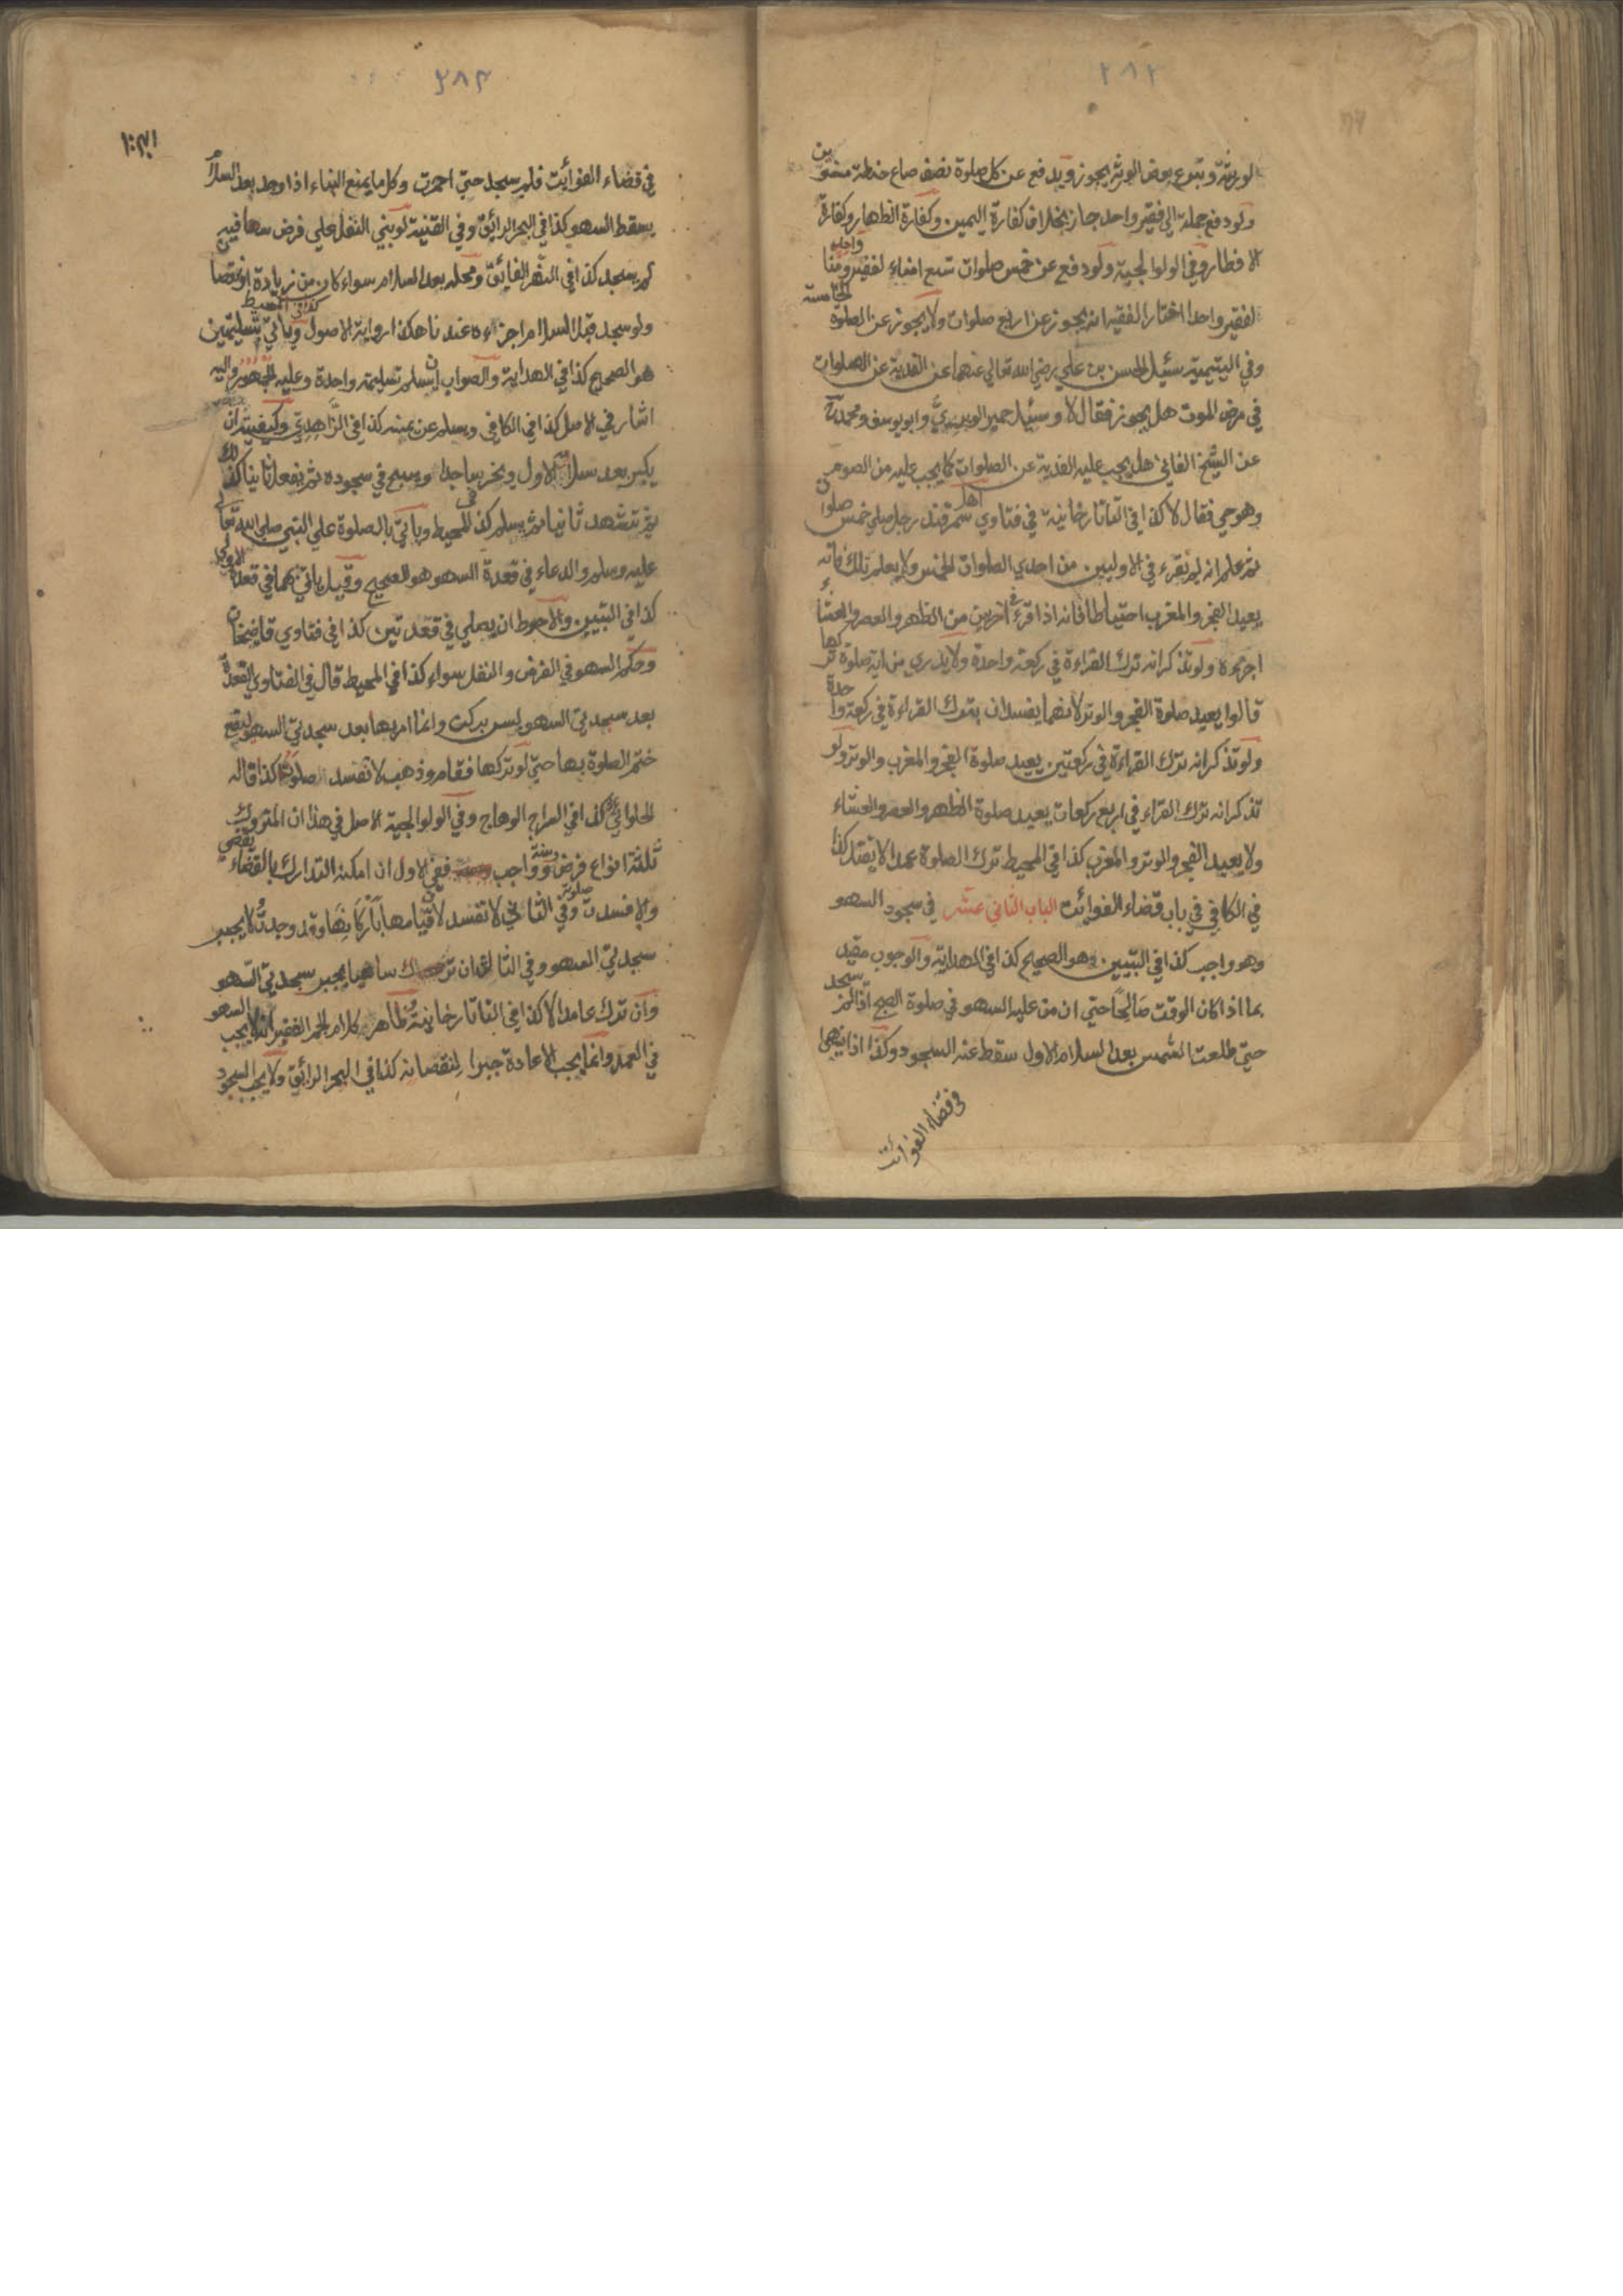 ٢٨٢
لورثته وتبرع بعض الورثة يجوز ويدفع عن كل صلوة نصف صاع حنطة منوين
ولو دفع جملة الى فقير واحد جاز بخلاف كفارة اليمين وكفارة الظهار وكفارة
الافطار وفي الولوالجية ولو دفع عن خمس صلوات تسع امناء لفقير واحد ومنا
لفقير واحد اختار الفقيه انه يجوز عن اربع صلوات ولا يجوز عن الصلوة الخامسة
وفي اليتيمية سئيل الحسن بن علي رضي الله تعالي عنهما عن الفدية عن الصلوات
في مرض الموت هل يجوز فقال لا وسئيل حمير الوبري وابو يوسف ومحمد
عن الشيخ الفاني هل يجب عليه الفدية عن الصلوات كما يجب عليه من الصوم
وهو حي فقال لا كذا في التاتارخانية في فتاوي اهل سمرقند رجل صلي خمس صلوات
ثم علم انه لم يقرء في الاوليين من احدي الصلوات الخمس ولا يعلم تلك فانه
يعيد الفجر والمغرب احتياطا فانه اذا قرء في اخريين من الظهر والعصر والعشاء
اجزءه ولو تذكر انه ترك القراءة في ركعة واحدة ولا يدري من اية صلوة تركها
قالوا يعيد صلوة الفجر والوتر لانهما يفسدان بترك القراءة في ركعة واحدة
ولو تذكر انه ترك القراءة في ركعتين يعيد صلوة الفجر والمغرب والوتر ولو
تذكر انه ترك القراء في اربع ركعات يعيد صلوة الظهر والعصر والعشاء
ولا يعيد الفجر والوتر والمغرب كذا في المحيط ترك الصلوة عمدا لا يقتل كذا
في الكافي في باب قضاء الفوائت الباب الثاني عشر في سجود السهو
وهو واجب كذا في التبيين وهو الصحيح كذا في الهداية والوجوب مقيد
بما اذا كان الوقت صالحا حتي ان من عليه السهو في صلوة الصبح اذا لم يسجد
حتي طلعت الشمس بعد السلام الاول سقط عنه السجود وكذا اذا سهى
في قضاء الفوائت
٢٨٣
في قضاء الفوائت فلم يسجد حتي احمرت وكل ما يمنع البناء اذا وجد بعد السلام
يسقط السهو كذا في البحر الرائق وفي القنية لو بني النفل علي فرض سها فيه
لم يسجد كذا في النهر الفائق ومحله بعد السلام سواء كان من زيادة او نقصان
ولو سجد قبل السلام اجزاءه عندنا هكذا رواية الاصول ويأتي بتسليمتين كذا في المحيط
هو الصحيح كذا في الهداية والصواب ان يسلم تسليمة واحدة وعليه الجمهور واليه
اشار في الاصل كذا في الكافي ويسلم عن يمينه كذا في الزاهدي وكيفيته ان
يكبر بعد سلامه الاول ويخر ساجدا ويسبح في سجوده ثم يفعل ثانيا كذلك
ثم يتشهد ثانيا ثم يسلم كذا في المحيط ويأتي بالصلوة علي النبي صلي الله تعالي
عليه وسلم والدعاء في قعدة السهو هو الصحيح وقيل يأتي بهما في قعدة الاولي
كذا في التبيين والاحوط ان يصلي في قعدتين كذا في فتاوي قاضيخان
وحكم السهو في الفرض والنفل سواء كذا في المحيط قال في الفتاوي القعدة
بعد سجدتي السهو ليس بركن وانما امر بها بعد سجدتي السهو ليقع
ختم الصلوة بها حتي لو تركها فقام وذهب لا تفسد صلوته كذا قاله
الحلوائي كذا في السراج الوهاج وفي الولوالجية الاصل في هذا ان المتروك
ثلثة انواع فرض وسنة وواجب ففي الاول ان امكنه التدارك بالقضاء يقضي
والا فسدت صلوته وفي الثاني لا تفسد لان قيامها باركانها وقد وجدت ولا يجبر
سجدتي السهو وفي الثالث ان ترك ساهيا يجبر سجدتي السهو
وان ترك عامدا لا كذا في التاتارخانية وظاهر كلام الجم الغفير انه لا يجب السهو
في العمد وانما يجب الاعادة جبرا لنقصانه كذا في البحر الرائق ولا يجب السجود